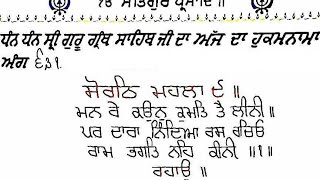 ੴ ਸਤਿਗੁਰ ਪ੍ਰਸਾਦਿ ॥
ਧੰਨ ਧੰਨ ਸ੍ਰੀ ਗੁਰੂ ਗ੍ਰੰਥ ਸਾਹਿਬ ਜੀ ਦਾ ਅੱਜ ਦਾ ਹੁਕਮਨਾਮਾ
ਅੰਗ ੬੩੧
ਸੋਰਠਿ ਮਹਲਾ ੯ ॥
ਮਨ ਰੇ ਕਉਨੁ ਕੁਮਤਿ ਤੈ ਲੀਨੀ ॥
ਪਰ ਦਾਰਾ ਨਿੰਦਿਆ ਰਸ ਰਚਿਓ
ਰਾਮ ਭਗਤਿ ਨਹਿ ਕੀਨੀ ॥੧॥
ਰਹਾਉ ॥